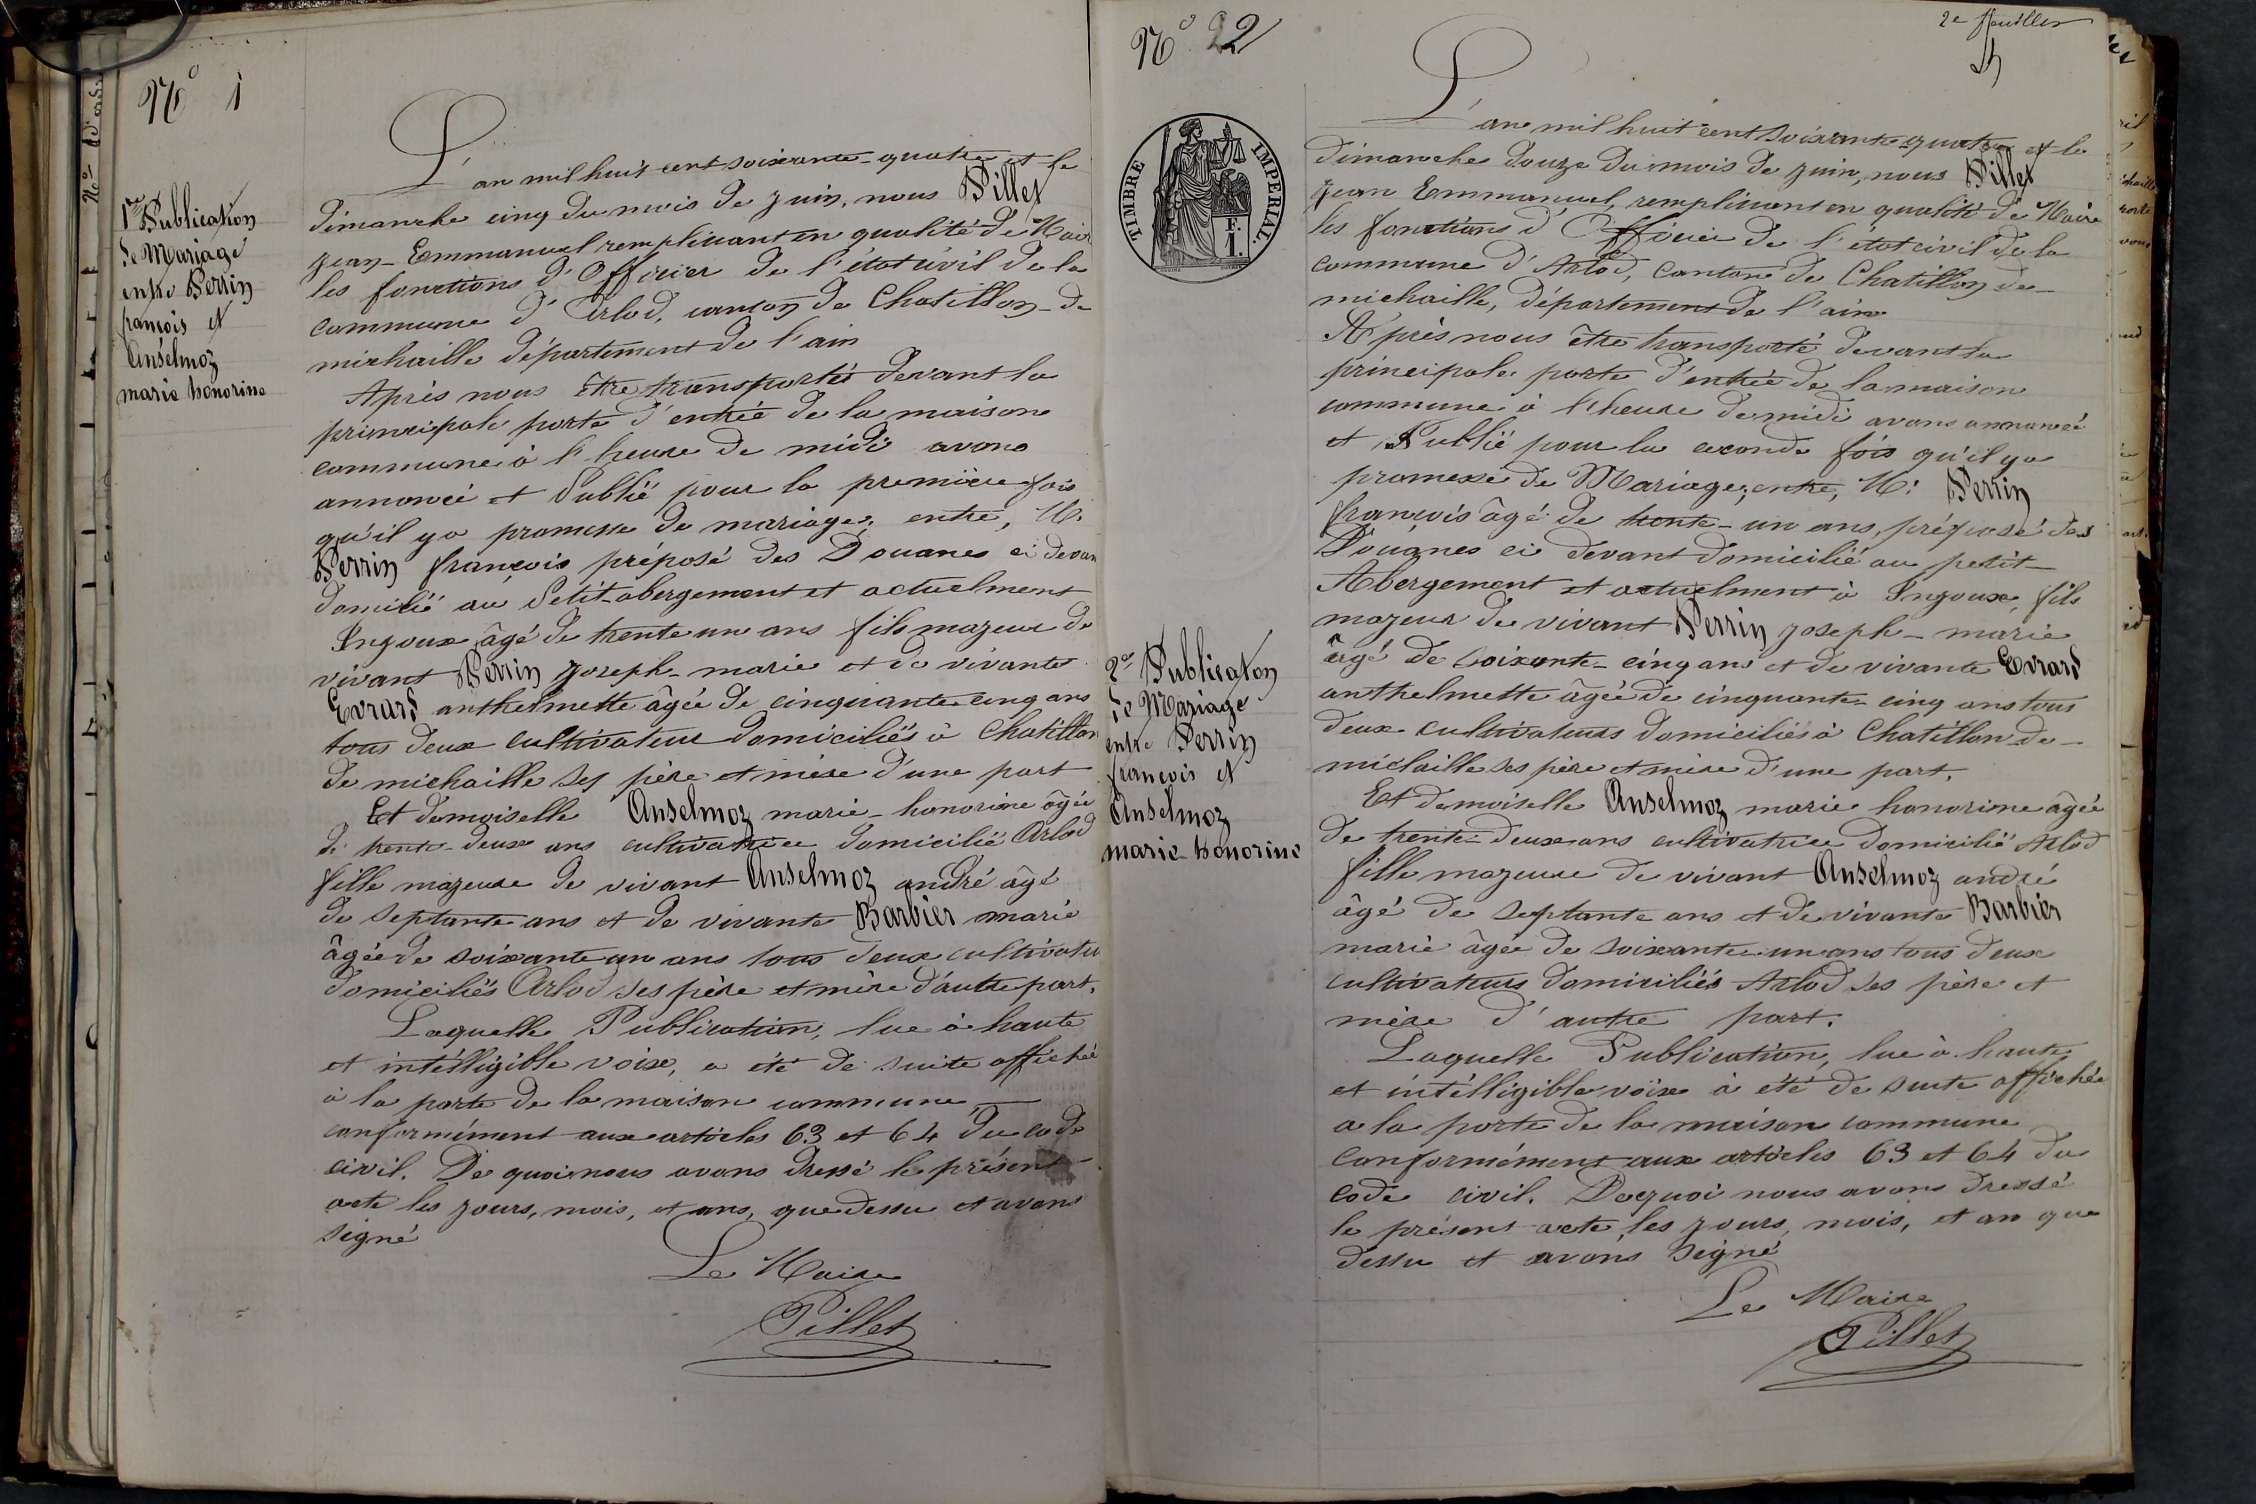 No d'ordre
No 1
1re Publication
de Mariage
entre Perrin
françois et
Anselmoz
marie honorine
L'an mil huit cent soixante-quatre et le
dimanche cinq du mois de juin, nous Pillet
jean-Emmanuel remplissant en qualité de Mair
les fonctions d'Officier de l'état civil de la
commune d'Arlod, canton de Chatillon-de
michaille département de l'ain
Après nous être transportés devant la
principale porte d'entrée de la maison
commune à l'heure de midi avons
annoncé et Publié pour la première fois
qu'il y a promesse de mariage; entre, M.
Perrin françois préposé des Douanes ci devan
domilié au Petit-abergement et actuelment
Injoux âgé de trente un ans fils majeur de
vivant Perrin joseph-marie et de vivante
Evrard anthelmette âgée de cinquante cinq ans
tous deux cultivateur domiciliés à Chatillon
de michaille ses père et mère d'une part
Et demoiselle Anselmoz marie-honorine âgée
de trente-deux ans cultivatrice domicilié Arlod
fille majeure de vivant Anselmoz andré âgé
de septante ans et de vivante Barbier marie
âgée de soixante un ans tous deux cultivatu
domiciliés Arlod ses père et mère d'autre part.
Laquelle Publication, lue à haute
et intélligible voix, a été de suite affichée
à la porte de la maison commune,
conformément aux articles 63 et 64 du code
civil. De quoi nous avons dressé le présent
acte les jours, mois, et ans, que dessu et avons
signé
Le Maire
Pillet
2e feuillet
No 22
TIMBRE IMPERIAL.
F.
1.
2e Publication
de Mariage
entre Perrin
françois et
Anselmoz
marie-honorine
L'an mil huit cent soixante quatre et le
dimanche douze du mois de juin, nous Pillet
jean Emmanuel, remplissant en qualité de Maire
les fonctions d'Officier de l'état civil de la
commune d'Arlod, canton de Chatillon de-
michaille, département de l'ain
Après nous être transporté devant la
principale porte d'entrée de la maison
commune à l'heure de midi avons annoncé
et Publié pour la seconde fois qu'il y a
promesse de Mariage; entre, M. Perrin
françois âgé de trente-un ans, préposé des
Douanes ci devant domicilié au petit-
Abergement et actuelment à Injoux, fils
majeur de vivant Perrin joseph-marie
âgé de soixante-cinq ans et de vivante Evrard
anthelmette âgée de cinquante-cinq ans tous
deux cultivateurs domiciliés à Chatillon-de-
michaille ses père et mère d'une part.
Et demoiselle Anselmoz marie honorine âgée
de trente-deux ans cultivatrice domicilié Arlod
fille majeure de vivant Anselmoz andré
âgé de septante ans et de vivante Barbier
marie âgée de soixante-un ans tous deux
cultivateurs domiciliés Arlod ses père et
mère d'autre part.
Laquelle Publication, lue à haute
et intélligible voix à été de suite affichée
a la porte de la maison commune
conformément aux articles 63 et 64 du
code civil. De quoi nous avons dressé
le présent acte, les jours, mois, et an que
dessu et avons signé
Le Maire
Pillet